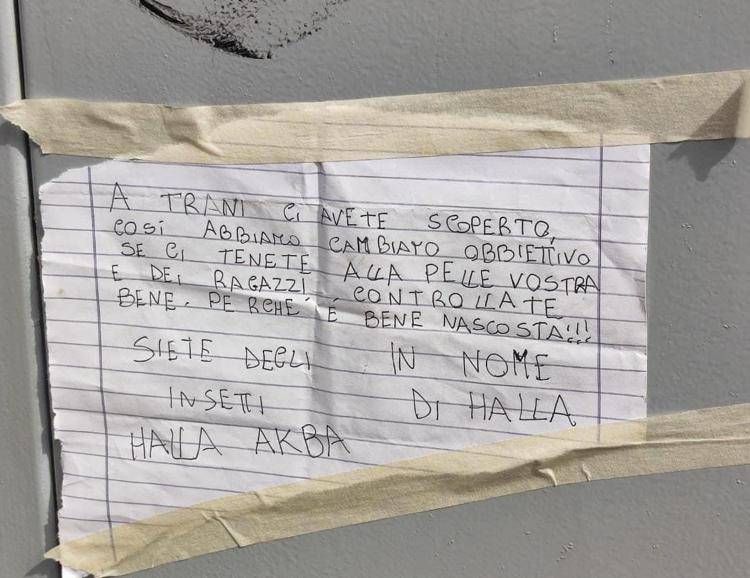 A TRANI CI AVETE SCOPERTO,
COSÍ ABBIAMO CAMBIATO OBBIETTIVO
SE CI TENETE ALLA PELLE VOSTRA
E DEI RAGAZZI, CONTROLLATE
BENE. PERCHÉ É BENE NASCOSTA!!!
SIETE DEGLI IN NOME
INSETTI DI HALLA
HALLA AKBA